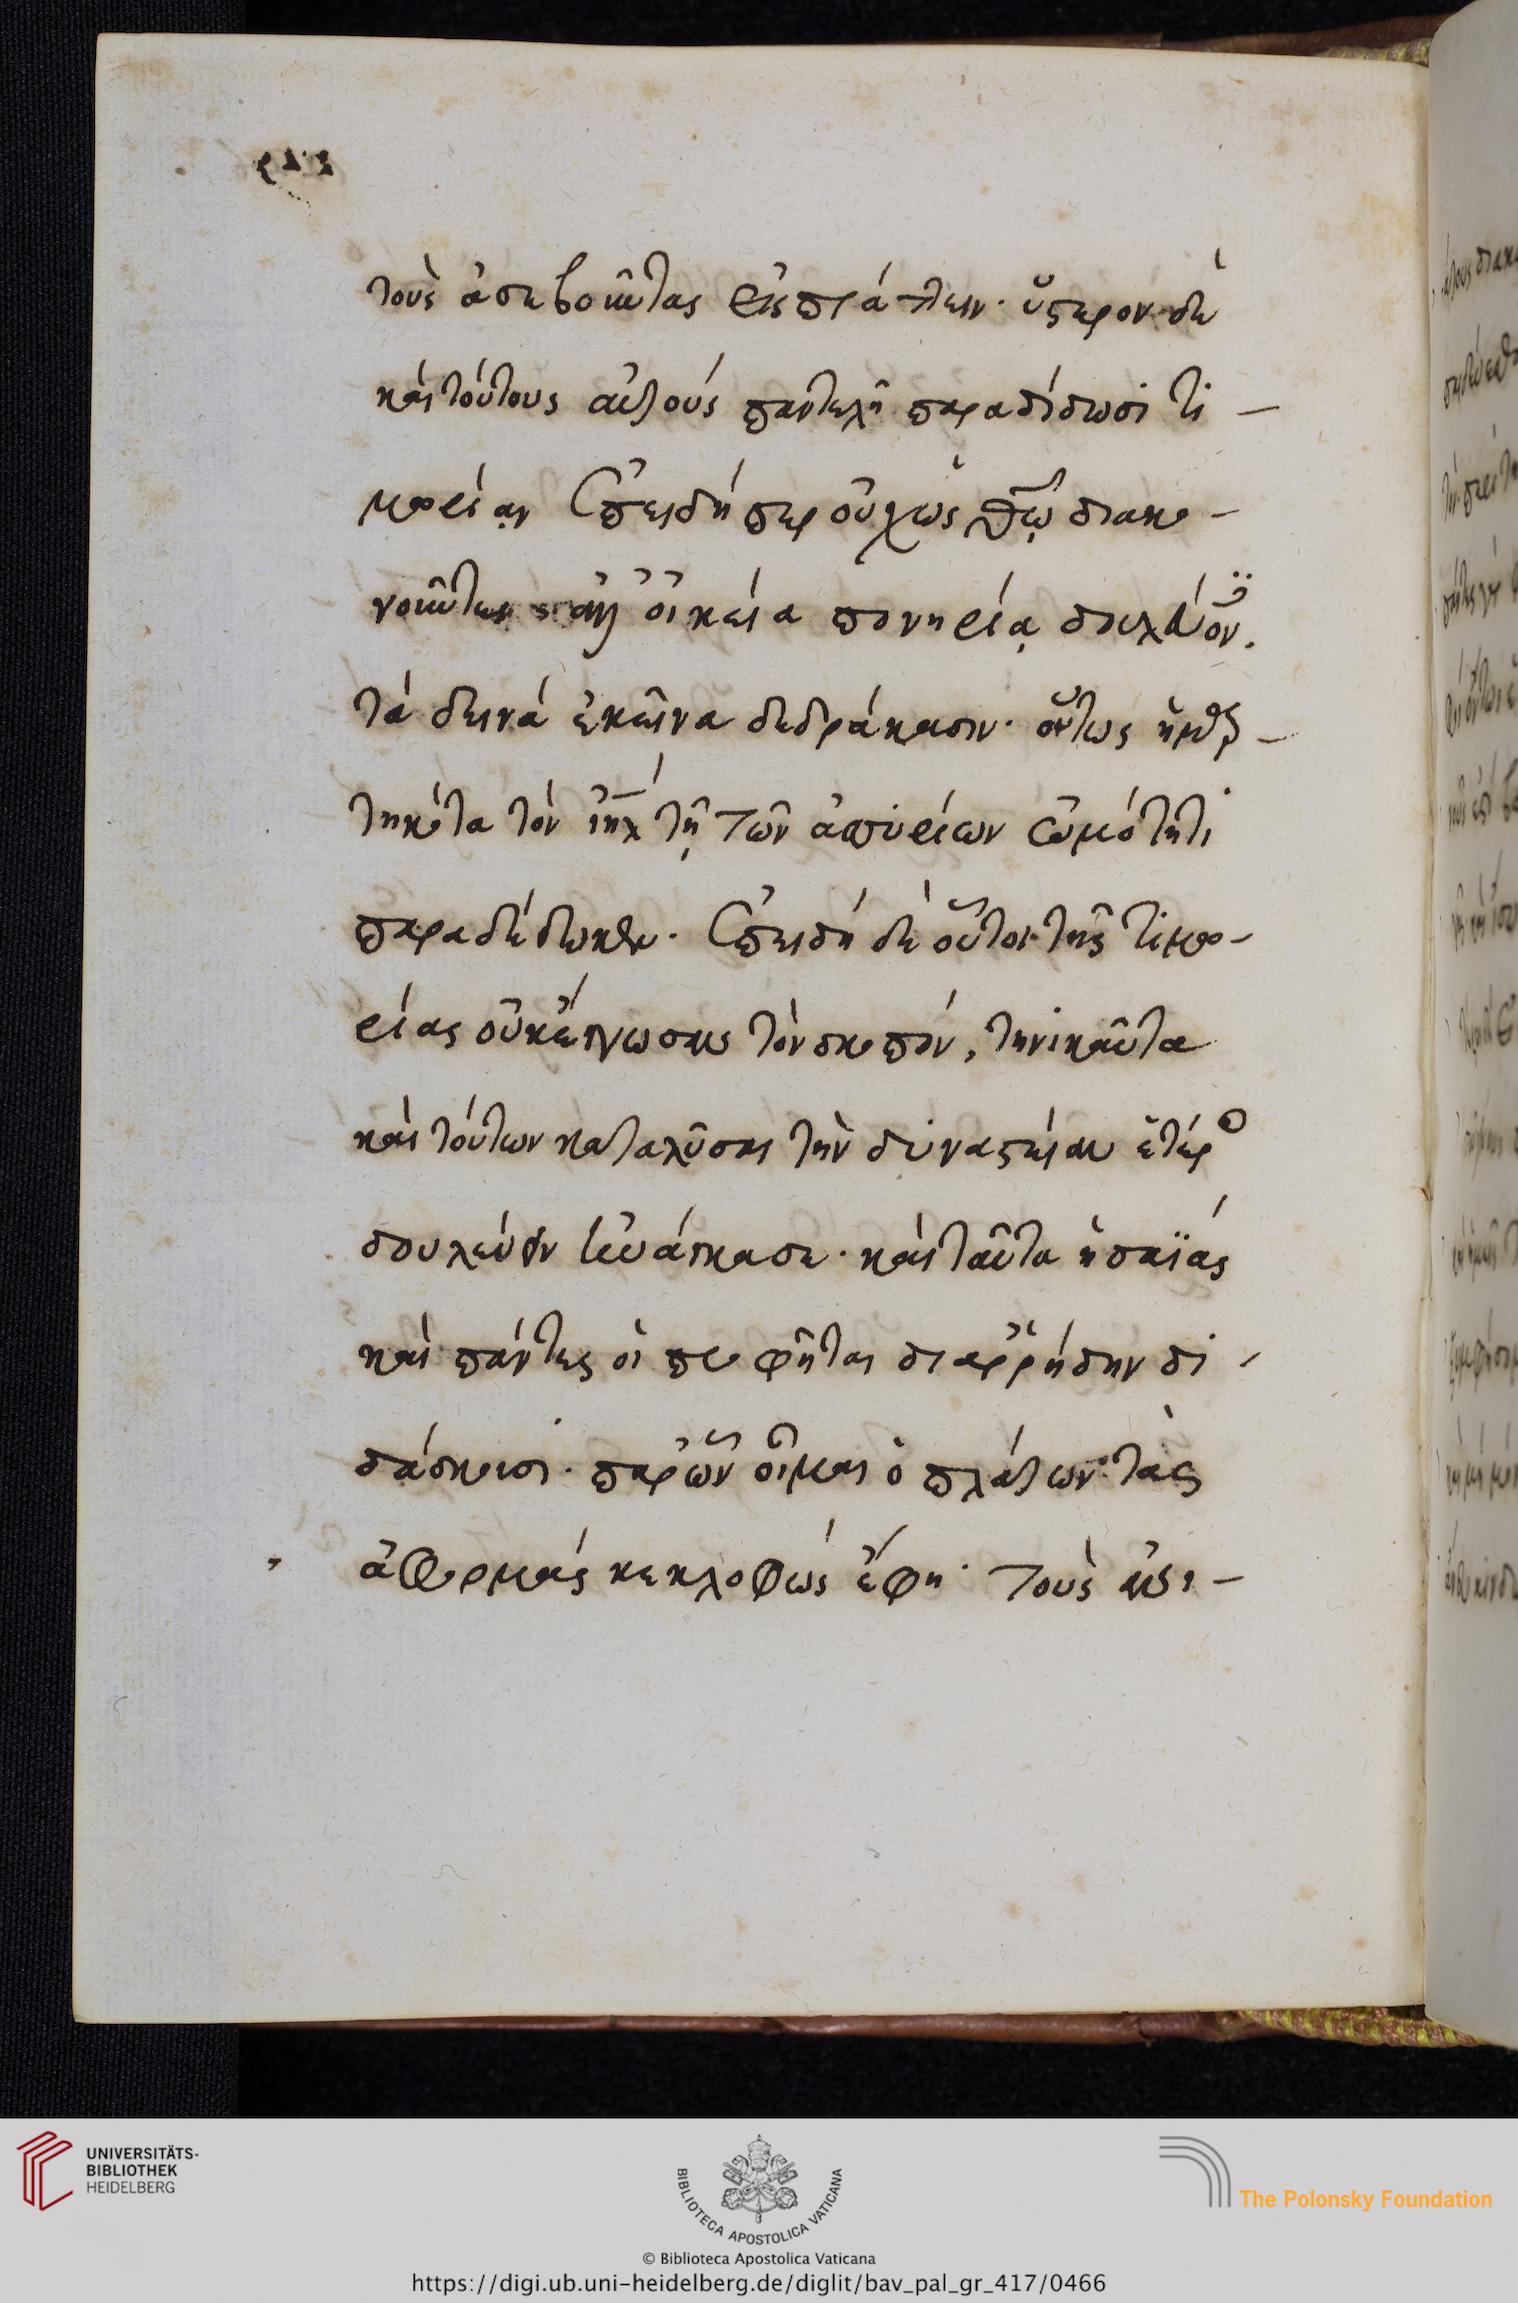 τοὺς ἀσεβοῦντας εἰσπράττειν· ὕστερον δὲ
καὶ τούτους αὐτοὺς παντελῆ παραδίδωσι τι-
μωρίαν ἐπειδήπερ οὐχ ὡς θῶ διακο-
οἰκεία πονηρία
τὰ δεινὰ ἐκεῖνα δεδράκασιν· οὕτως ἡμαρ-
τηκότα τὸν ιηλ τῇ τῶν ἀσσυρίων ὠμότητι
παραδέδωκεν· ἐπειδὴ δὲ οὗτοι τῆς τιμω-
ρίας οὐκ ἔγνωσαν τὸν σκοπόν, τηνικαῦτα
καὶ τούτων καταλῦσαι τὴν δυναστείαν ἑτέρ
δουλεύειν ἠνάγκασε· καὶ ταῦτα ἡσαΐας
καὶ πάντες οἱ προφῆται διαρρήδην δι-
δάσκουσι· παρ᾽ ὧν οἶμαι ὁ πλάτων τὰς
ἀφορμὰς κεκλοφὼς ἔφη· τοὺς
UNIVERSITÄTS-
BIBLIOTHEK
HEIDELBERG
BIBLIOTECA APOSTOLICA VATICANA
The Polonsky Foundation
© Biblioteca Apostolica Vaticana
https://digi.ub.uni-heidelberg.de/diglit/bav_pal_gr_417/0466